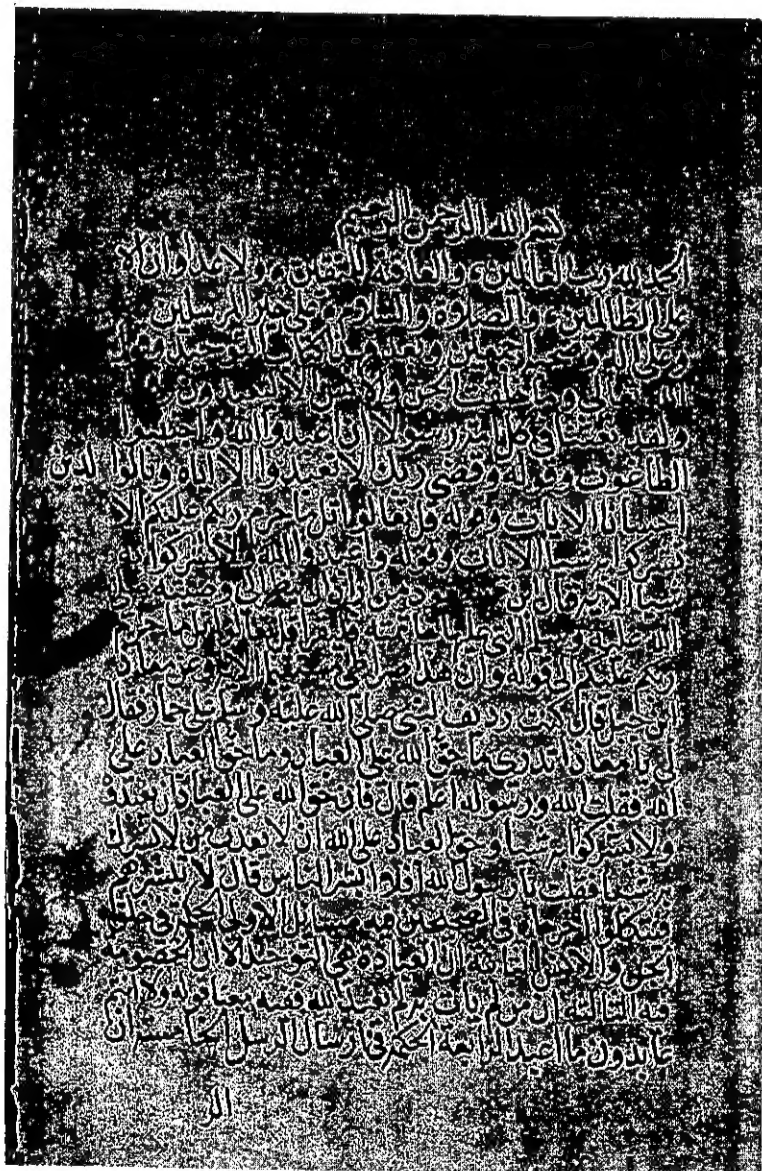 بسم الله الرحمن الرحيم
الحمد لله رب العالمين والعاقبة للمتقين ولا عدوان الا
على الظالمين والصلاة والسلام على خير المرسلين
وعلى اله وصحبه اجمعين وبعد فهذا كتاب التوحيد وقول
الله تعالى وما خلقت الجن والانس الا ليعبدون
ولقد بعثنا في كل امة رسولا ان اعبدوا الله واجتنبوا
الطاغوت وقوله وقضى ربك الا تعبدوا الا اياه وبالوالدين
احسانا الايات وقوله قل تعالوا اتل ما حرم ربكم عليكم الا
تشركوا به شيئا الايات وقوله واعبدوا الله ولا تشركوا به
شيئا الاية قال ابن مسعود من اراد ان ينظر الى وصية محمد صلى
الله عليه وسلم التي عليها خاتمه فليقرا قل تعالوا اتل ما حرم
ربكم عليكم الى قوله وان هذا صراطي مستقيما الاية وعن معاذ
ابن جبل قال كنت رديف النبي صلى الله عليه وسلم على حمار فقال
لي يا معاذ اتدري ما حق الله على العباد وما حق العباد على
الله فقلت الله ورسوله اعلم قال فان حق الله على العباد ان يعبدوه
ولا يشركوا به شيئا وحق العباد على الله ان لا يعذب من لا يشرك
به شيئا فقلت يا رسول الله افلا ابشر الناس قال لا تبشرهم
فيتكلوا اخرجاه في الصحيحين فيه مسايل الاولى الحكمة في خلق
الجن والانس الثانية ان العبادة هي التوحيد لان الخصومة
فيه الثالثة ان من لم يات به لم يعبد الله ففيه معنا قوله ولا انتم
عابدون ما اعبد الرابعة الحكمة في ارسال الرسل الخامسة ان
الر